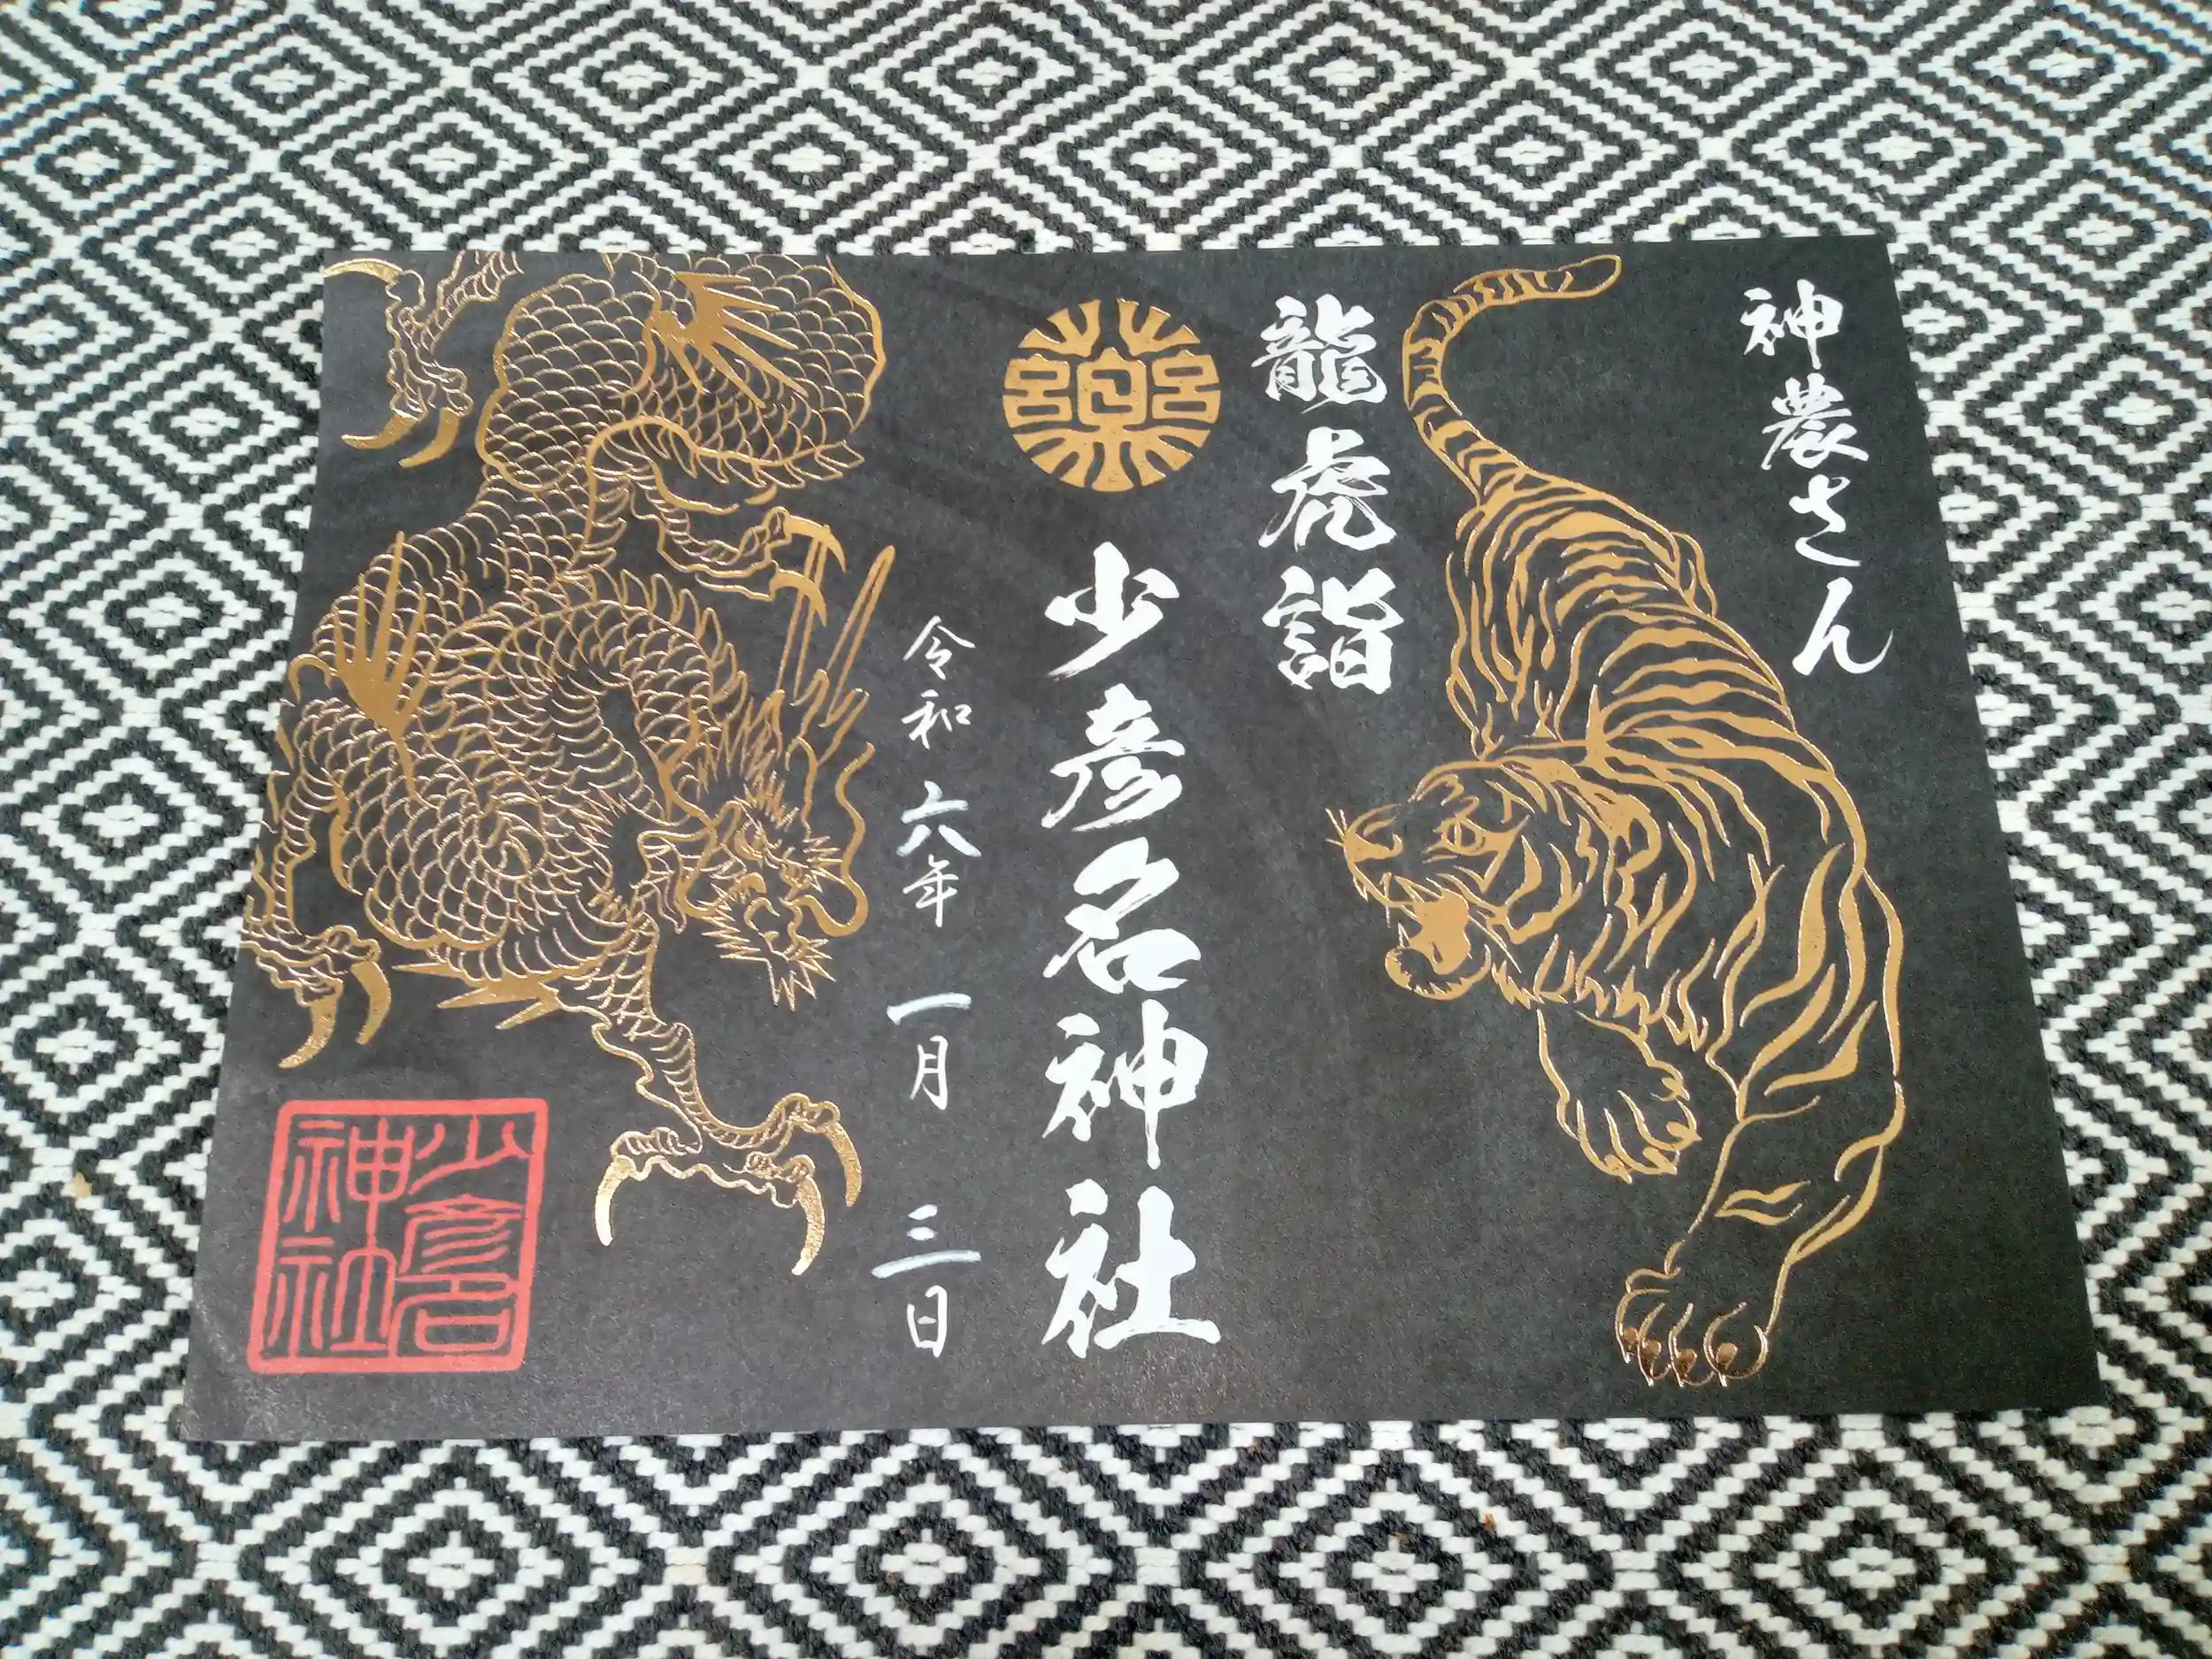 神農さん
龍虎詣
薬
少彦名神社
令和六年一月三日
少彦名
神社